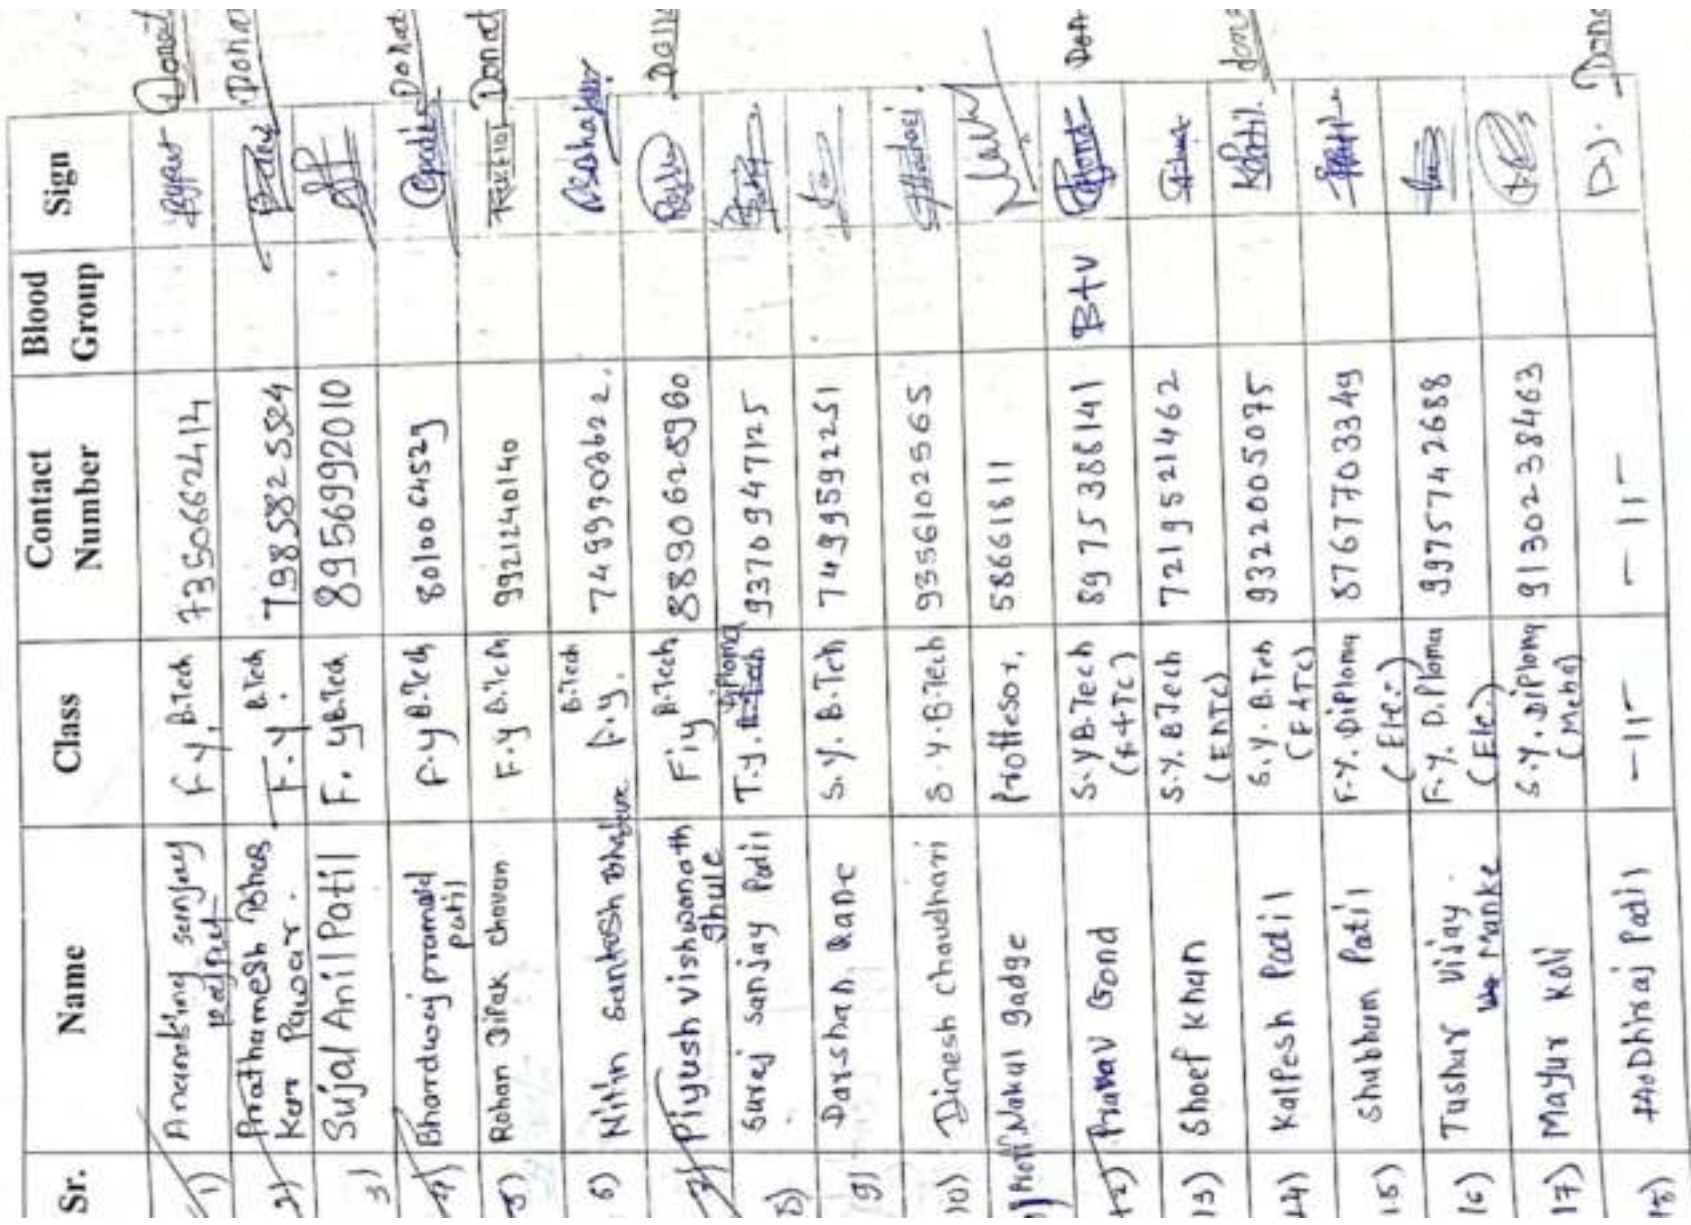 Sr. Name Class Contact Number Blood Group Sign
1) sanjay F.Y. B.Tech 7350662414 Donat
2) Prathamesh Bhas
Ker Pawar. F.Y. B.Tech 7985825524 Dona
3) Sujal Anil Patil F. Y B.Tech 8956992010
4) Bhardwaj pramod
patil F.Y B.Tech 8010064529 Donat
5) Rohan Dipak Chavan F.Y B.Tech 9921240140 Donat
6) Nitin Santosh F.Y. B.Tech
7) Piyush vishwanath
ghule Fiy B.Tech 8830628960
8) Suraj Sanjay Patil T.y. Diploma 9370947125
(9) Darshan Rane S.Y. B.Tech 7499592251
10) Dinesh chaudhari S.Y.B.Tech 9356102565
Proff. Nakul gadge Proffesor. 58661811
12) Pranav Gond S.Y B.Tech
(E&TC) 8975388141 B+V Don
13) Shoef Khan S.Y. B.Tech
(EnTC) 7219521462
14) Kalpesh Patil S.Y. B.Tech
(E&TC) 9322005075 K.Patil. done
15) Shubham Patil F.Y. Diploma
(Ele.) 8767703349
16) Tushar Viday.
Manke F.Y. Diploma
(Ele.) 9975742688
17) Mayur Koli S.Y. Diploma
(Meha) 9130238463
18) Dhiraj Patil -11- -11- D). Done